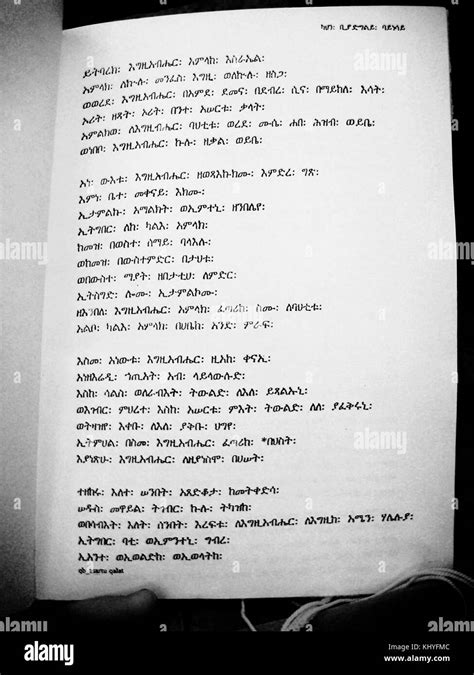 ይትባረክ፡ እግዚአብሔር፡ አምላክ፡ እስራኤል፡
አምላክ፡ ለኵሉ፡ መንፈስ፡ እግዚ፡ ወለኵሉ፡ ዘስጋ፡
ወወረደ፡ እግዚአብሔር፡ በአምደ፡ ደመና፡ በደብረ፡ ሲና፡ በማይክል፡ እሳት፡
ኦሪት፡ ዘጸት፡ ኦሪት፡ በንተ፡ አሠርቱ፡ ቃላት፡
አምልክወ፡ ለእግዚአብሔር፡ ባህቲቱ፡ ወረደ፡ ሙሴ፡ ሐበ፡ ሕዝብ፡ ወይቤ፡
ወነበቦ፡ እግዚአብሔር፡ ኩሉ፡ ዘቃል፡ ወይቤ፡
አነ፡ ውእቱ፡ እግዚአብሔር፡ ዘወጻእኩክሙ፡ እምድረ፡ ግጽ፡
እምነ፡ ቤተ፡ መቀናይ፡ እክሙ፡
ኢታምልኩ፡ አማልክት፡ ወኢምተኒ፡ ዘንበሌየ፡
ኢትግበር፡ ለከ፡ ካልእ፡ አምላክ፡
ከመዝ፡ በወስተ፡ ሰማይ፡ ባላእሉ፡
ወከመዝ፡ በውስተምድር፡ በታህቱ፡
ወበውስተ፡ ማየት፡ ዘበታቲህ፡ ለምድር፡
ኢትስግድ፡ ሎሙ፡ ኢታምልኮሙ፡
ዘእንበለ፡ እግዚአብሔር፡ አምላክ፡ ፈጣሪከ፡ ስሙ፡ ለባህቲቱ፡
አልቦ፡ ካልእ፡ አምላክ፡ በሀቤከ፡ አንድ፡ ምራፍ፡
እስመ፡ አነውቱ፡ እግዚአብሔር፡ ዚአከ፡ ቀናኢ፡
አብ፡ ላይላውሉድ፡
እስከ፡ ሳልስ፡ ወለራብእት፡ ትውልድ፡ ለእለ፡ ይጸልኡኒ፡
ወእገብር፡ ምህረተ፡ እስከ፡ አሠርቱ፡ ምእት፡ ትውልድ፡ ለለ፡ ያፈቅሩኒ፡
ወትዛዝየ፡ እቀቡ፡ ለእለ፡ ያቅቡ፡ ህግየ፡
ኢትምህል፡ በስመ፡ እግዚአብሔር፡ ፈጣሪከ፡ *በህስት፡
እያነጽሁ፡ እግዚአብሔር፡ ለዚያነስሞ፡ በሀሠት፡
ተዘከሩ፡ እለተ፡ ሠንበት፡ አጸድቆታ፡ ከመትቀድሳ፡
ሠዱስ፡ መዋይል፡ ትገብር፡ ኩሉ፡ ትካዝከ፡
ወበሳብእት፡ እለት፡ ሰንበት፡ እረፍቱ፡ ለእግዚአብሔር፡ ለእግዚክ፡ አሜን፡ ሃሌሉያ፡
ኢትግበር፡ ባቲ፡ ወኢምንተኒ፡ ግብረ፡
ኢአንተ፡ ወኢወልድከ፡ ወኢወላትከ፡
alamy
Image ID: KHYFMC
www.alamy.com